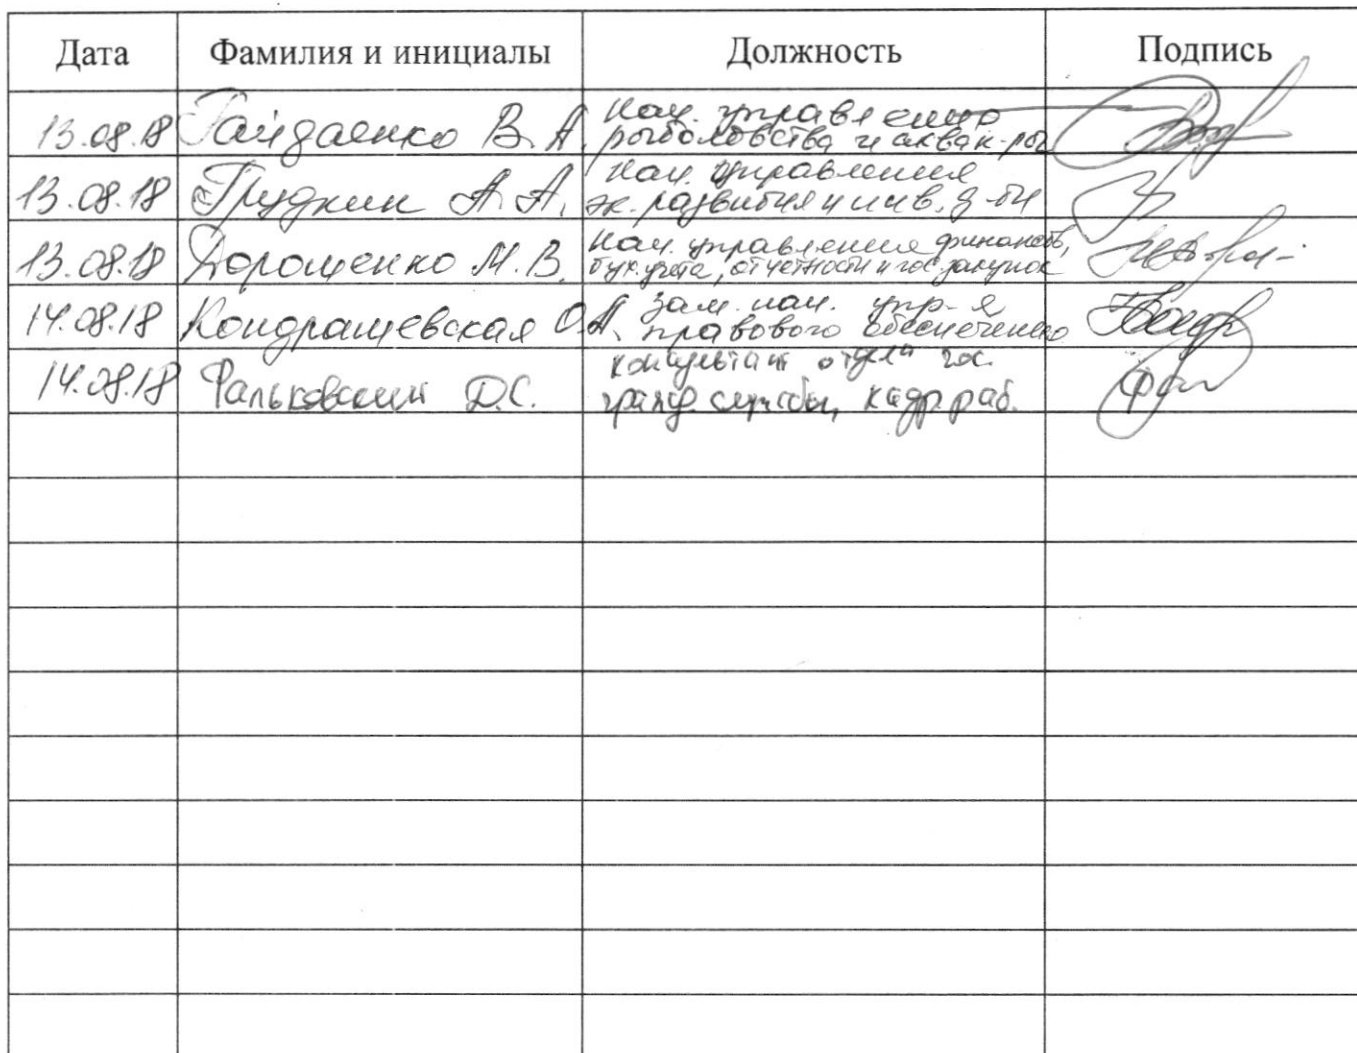 Дата Фамилия и инициалы Должность Подпись
13.08.18 Гайдаенко В.А. нач. управления
рыболовства и аквак-ры
13.08.18 Грудкин А.А. нач. управления
эк. развития и инв. д-ти
13.08.18 Дорошенко М.В. нач. управления финансов,
бух. учета, отчетности и гос. закупок
14.08.18 Кондрашевская О.А. зам. нач. упр-я
правового обеспечения
14.08.18 Фальковский Д.С. консультант отдела гос.
гражд. службы, кадр. раб.